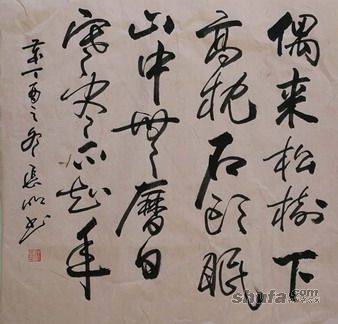 偶来松樹下
高枕石头眠
山中无曆日
寒尽不知年
丁酉之冬
shufa.com